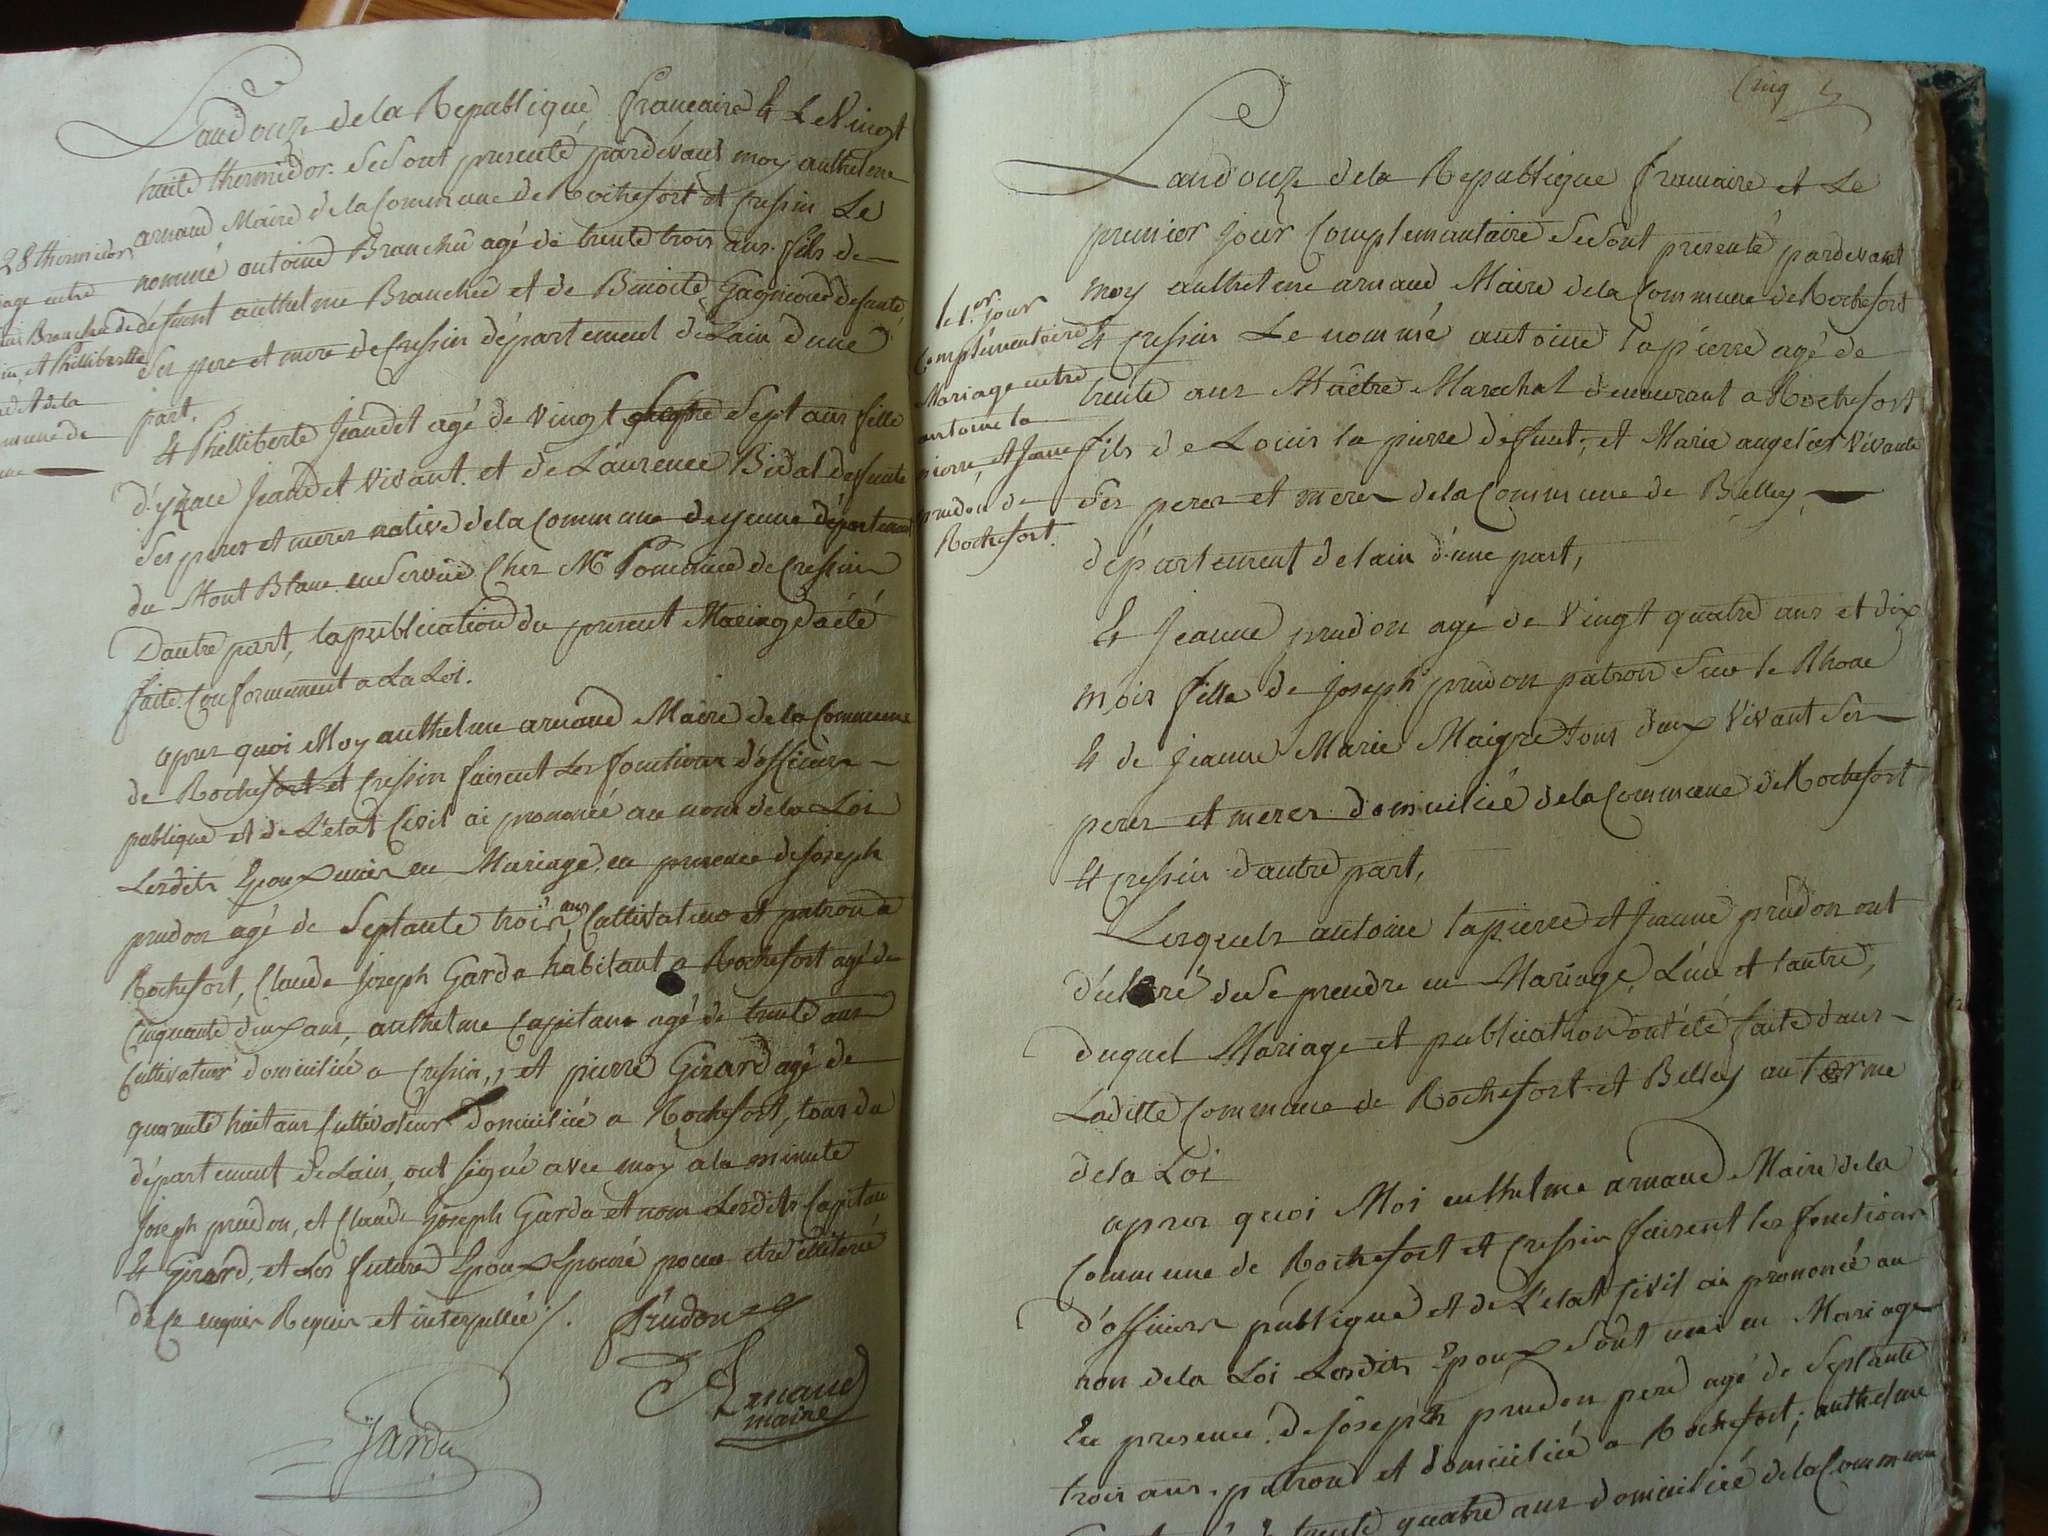 Landouze dela Republique francaire & Le Vingt
huite thermidor. Sesont presenté pardevant moy anthelme
arnaud Maire dela Commune de Rochefort et Cressin Le
nommé antoine Branchu agé de trente trois ans. fils de
defunt anthelme Branchu et de Benoite Gagnieur defunte
Ses pere et mere de Cressin département de Lain d'une
part.
& Phelliberte Jeandet agé de Vingt Sept ans fille
d'ynace Jeandet Vivant. et de Laurence Bidal defunte
Ses peres et meres native dela Commune deyenne département
du Mont Blanc en Service Cher Mr de Cressin
Dautre part, la publication du present Mariage a été
faite Conformement a La Loi.
apres quoi Moy anthelme arnaud Maire dela Commune
de Rochefort et Cressin faisent Les fonctions d'officier
publique et de L'etat Civil ai prononcé au nom dela Loi
Lesdits Epoux unis en Mariage, en presence de Joseph
prudon agé de Septante trois ans, Cultivateur et patron a
Rochefort, Claude Joseph Garda habitant a Rochefort agé de
Cinquante deux ans, anthelme Capitan agé de trente ans
Cultivateur domicilié a Cressin, et pierre Girard agé de
quarante huit ans Cultivateur domicilié a Rochefort, tous du
département de Lain, ont signé avec moy ala minute
Joseph prudon, et Claude Joseph Garda et non Lesdits Capitan
& Girard, et Les futures Epoux pour etre illiteré
de ce enquis Requis et interpellée /.
Prudon
Arnaud
maire
Garda
28 thermidor
iage entre
Branchu de
et Phelliberte
dela
mune de
Cinq 5
Landouze dela Republique francaire et Le
premier jour Complementaire Sesont presenté pardevant
moy anthelme arnaud Maire dela Commune de Rochefort
& Cressin Le nommé antoine Lapierre agé de
trente ans Maitre Marechal demeurant a Rochefort
fils de Louis la pierre defunt, et Marie angelier Vivante
Ses peres et meres dela Commune de Belley,
département de lain d'une part,
& Jeanne prudon agé de Vingt quatre ans et dix
mois fille de Joseph prudon patron Sur le Rhone
& de Jeanne Marie Maigre tous deux Vivant Ses
peres et meres domiciliée dela Commune de Rochefort
& Cressin d'autre part,
Lesquels antoine lapierre et Jeanne prudon ont
d'eclaré de Se prendre en Mariage, L'un et l'autre,
duquel Mariage et publication ont été faite dans
Laditte Commune de Rochefort et Belley au terme
dela Loi
apres quoi Moi anthelme arnaud Maire dela
Commune de Rochefort et Cressin faisent les fonctions
d'officiers publique et de L'etat Civil ai prononcé au
non dela Loi Lesdits Epoux Sont uni en Mariage
En presence de Joseph prudon pere agé de Septante
trois ans. patron et domicilié a Rochefort; anthelme
trente quatre ans domicilié dela Commune
le 1.er jour
Complémentaire
Mariage entre
antoine la
pierre, et Jeanne
prudon de
Rochefort.